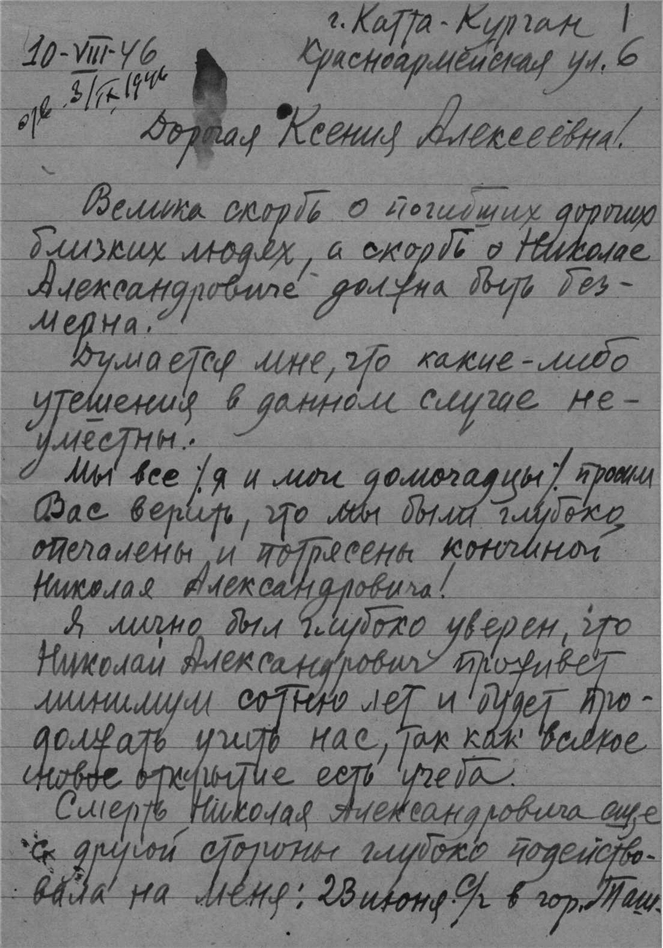 г. Катта-Курган
10-VIII-46
Красноармейская ул. 6
отв. 3/IX 1946
Дорогая Ксения Алексеевна!
Велика скорбь о погибших дорогих
близких людях, а скорбь о Николае
Александровиче должна быть без-
мерна.
Думается мне, что какие-либо
утешения в данном случае не-
уместны.
Мы все /я и мои домочадцы/ просим
Вас верить, что мы были глубоко
опечалены и потрясены кончиной
Николая Александровича!
Я лично был глубоко уверен, что
Николай Александрович проживет
минимум сотню лет и будет про-
должать учить нас, так как всякое
новое открытие есть учеба.
Смерть Николая Александровича еще
с другой стороны глубоко подейство-
вала на меня: 23 июня с/г в гор. Таш-